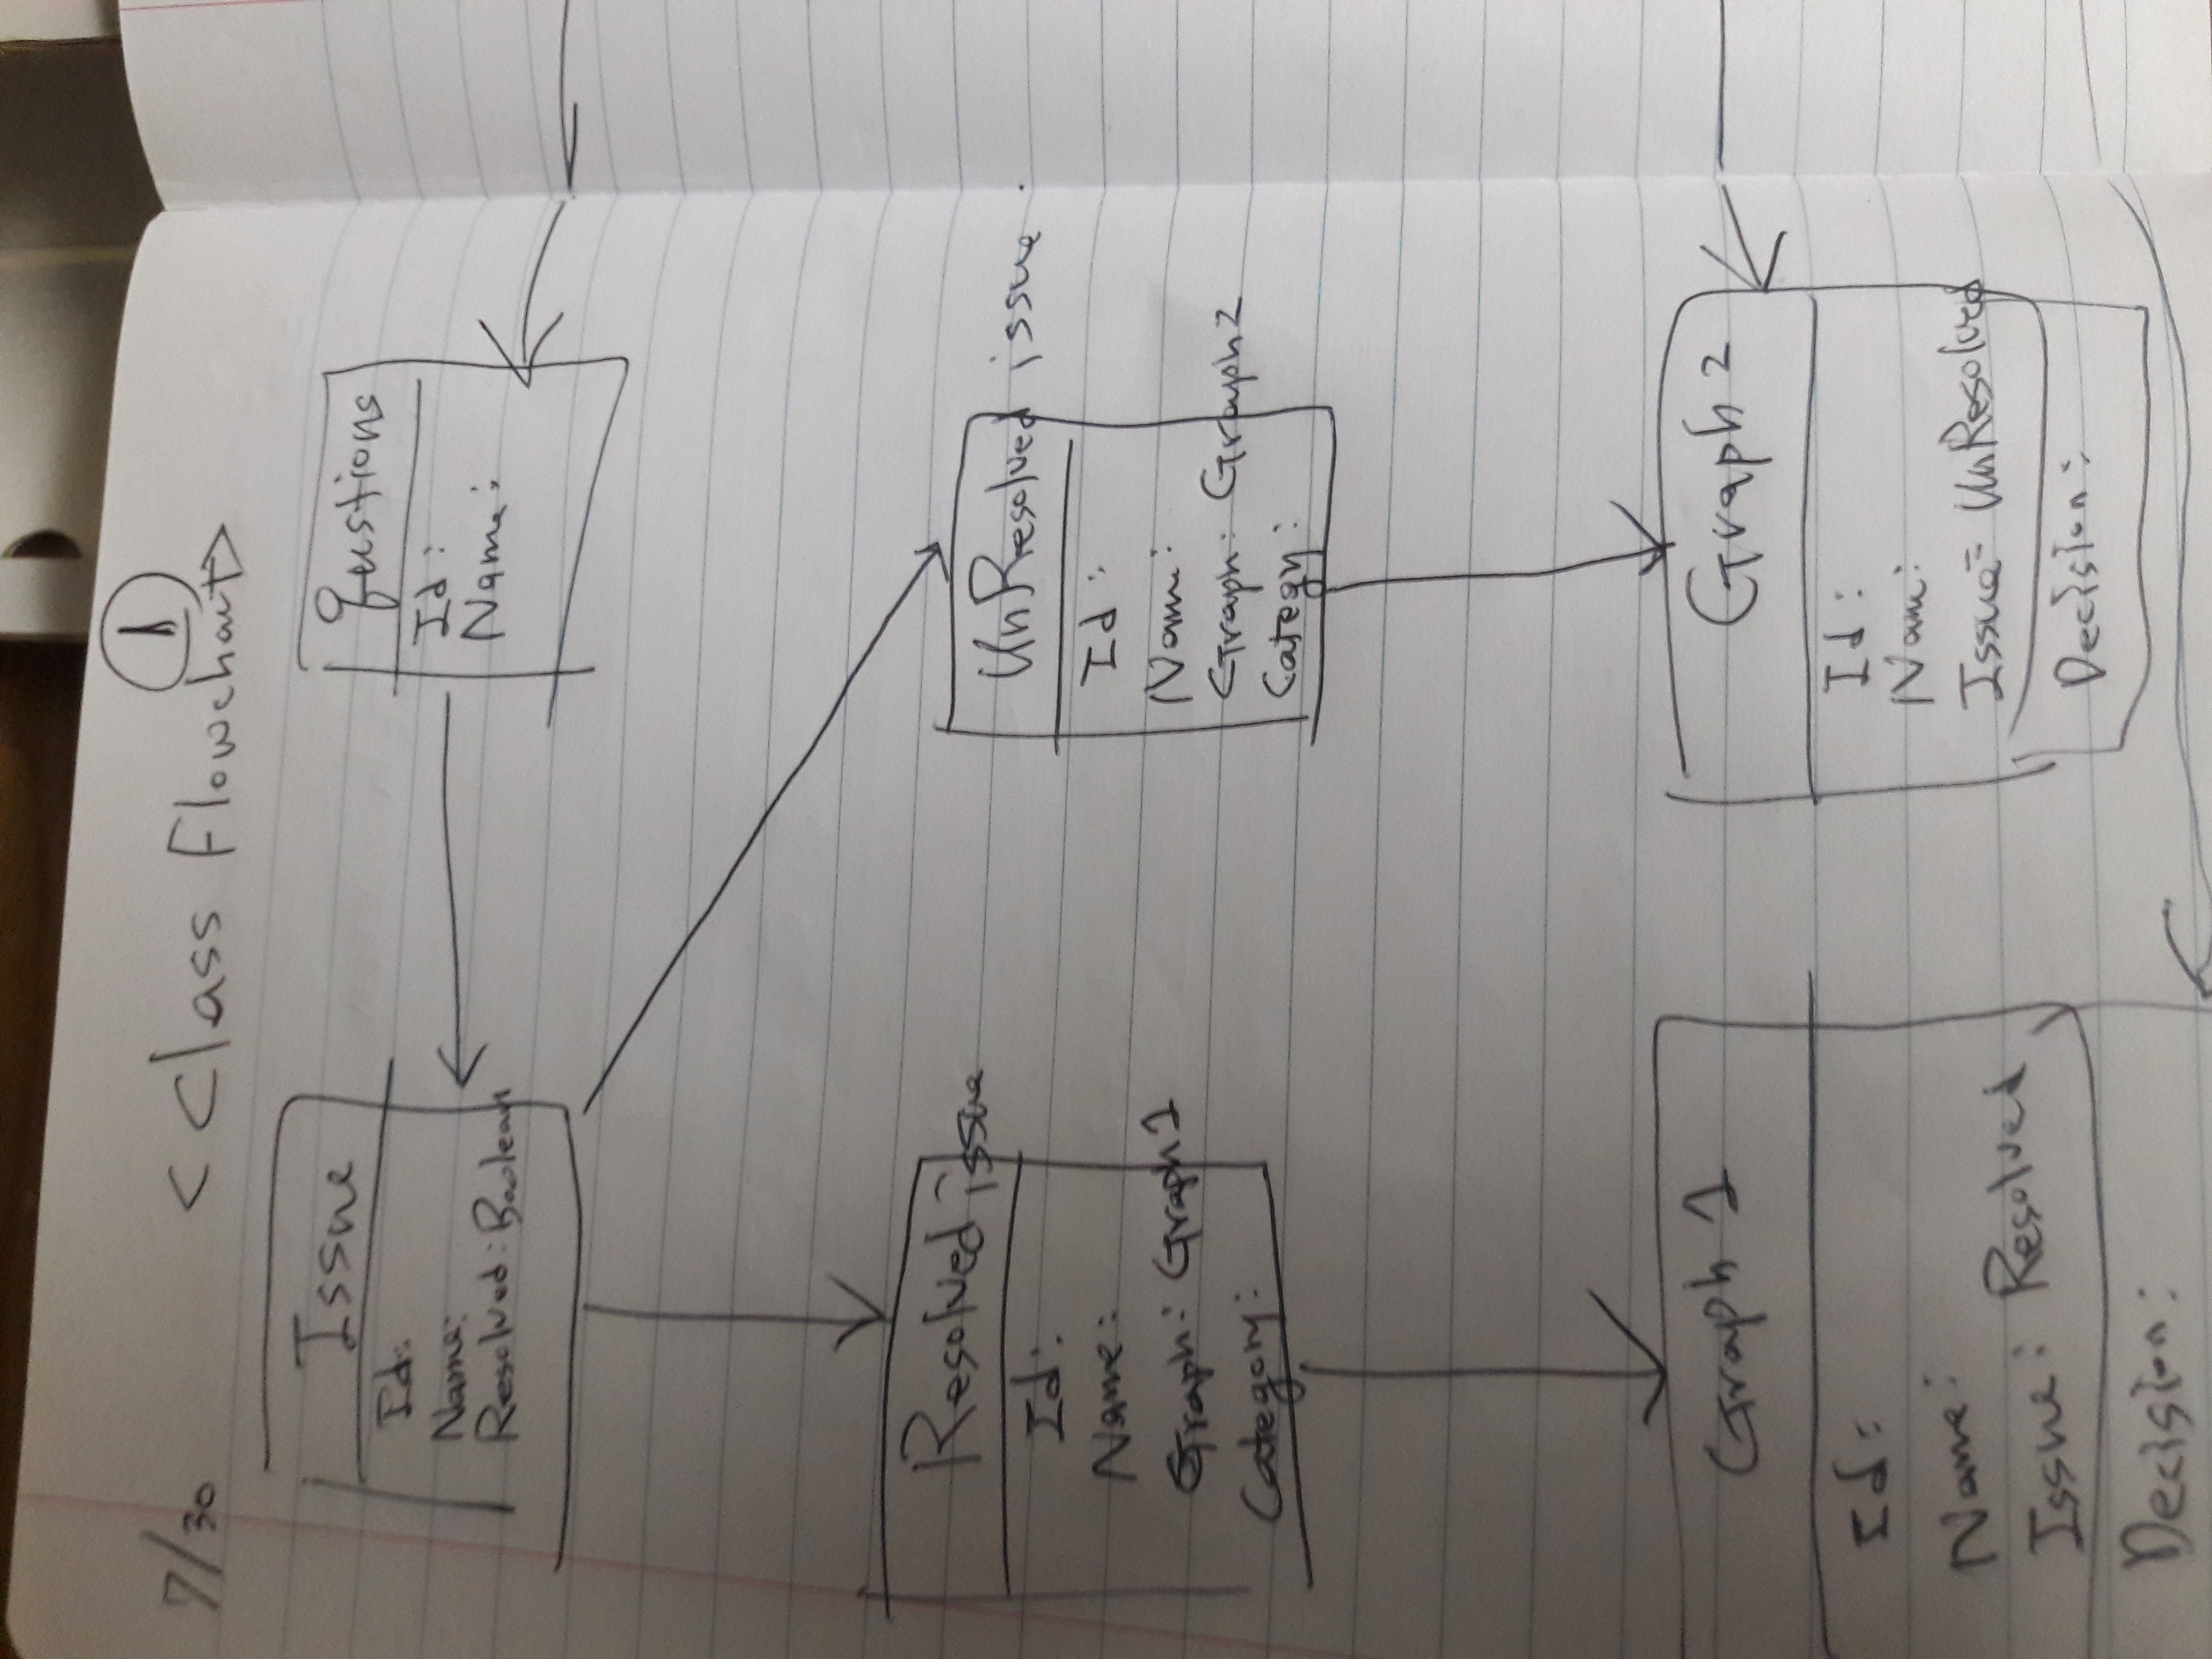 1
7/30 <Class Flowchart>
Issue
Id:
Name:
Resolved: Boolean
qustions
Id:
Name:
Resolved issue
Id:
Name:
Graph: Graph1
Category:
UnResolved issue
Id:
Name:
Graph: Graph2
Categy:
Graph 1
Id:
Name:
Issue: Resolved
Decision:
Graph 2
Id:
Name:
Issue= UnResolved
Decision: